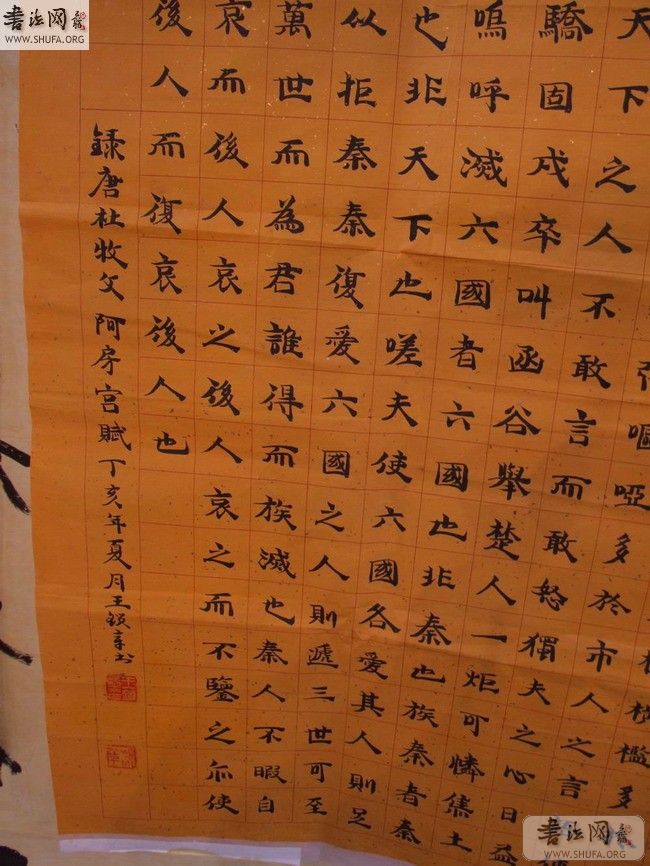 橫檻多
嘔啞多於市人之言
天下之人不敢言而敢怒獨夫之心日益
驕固戍卒叫函谷舉楚人一炬可憐焦土
嗚呼滅六國者六國也非秦也族秦者秦
也非天下也嗟夫使六國各愛其人則足
以拒秦秦復愛六國之人則遞三世可至
萬世而為君誰得而族滅也秦人不暇自
哀而後人哀之後人哀之而不鑒之亦使
後人而復哀後人也
錄唐杜牧文阿房宮賦丁亥年夏月王书
書法网
WWW.SHUFA.ORG
書法网
WWW.SHUFA.ORG